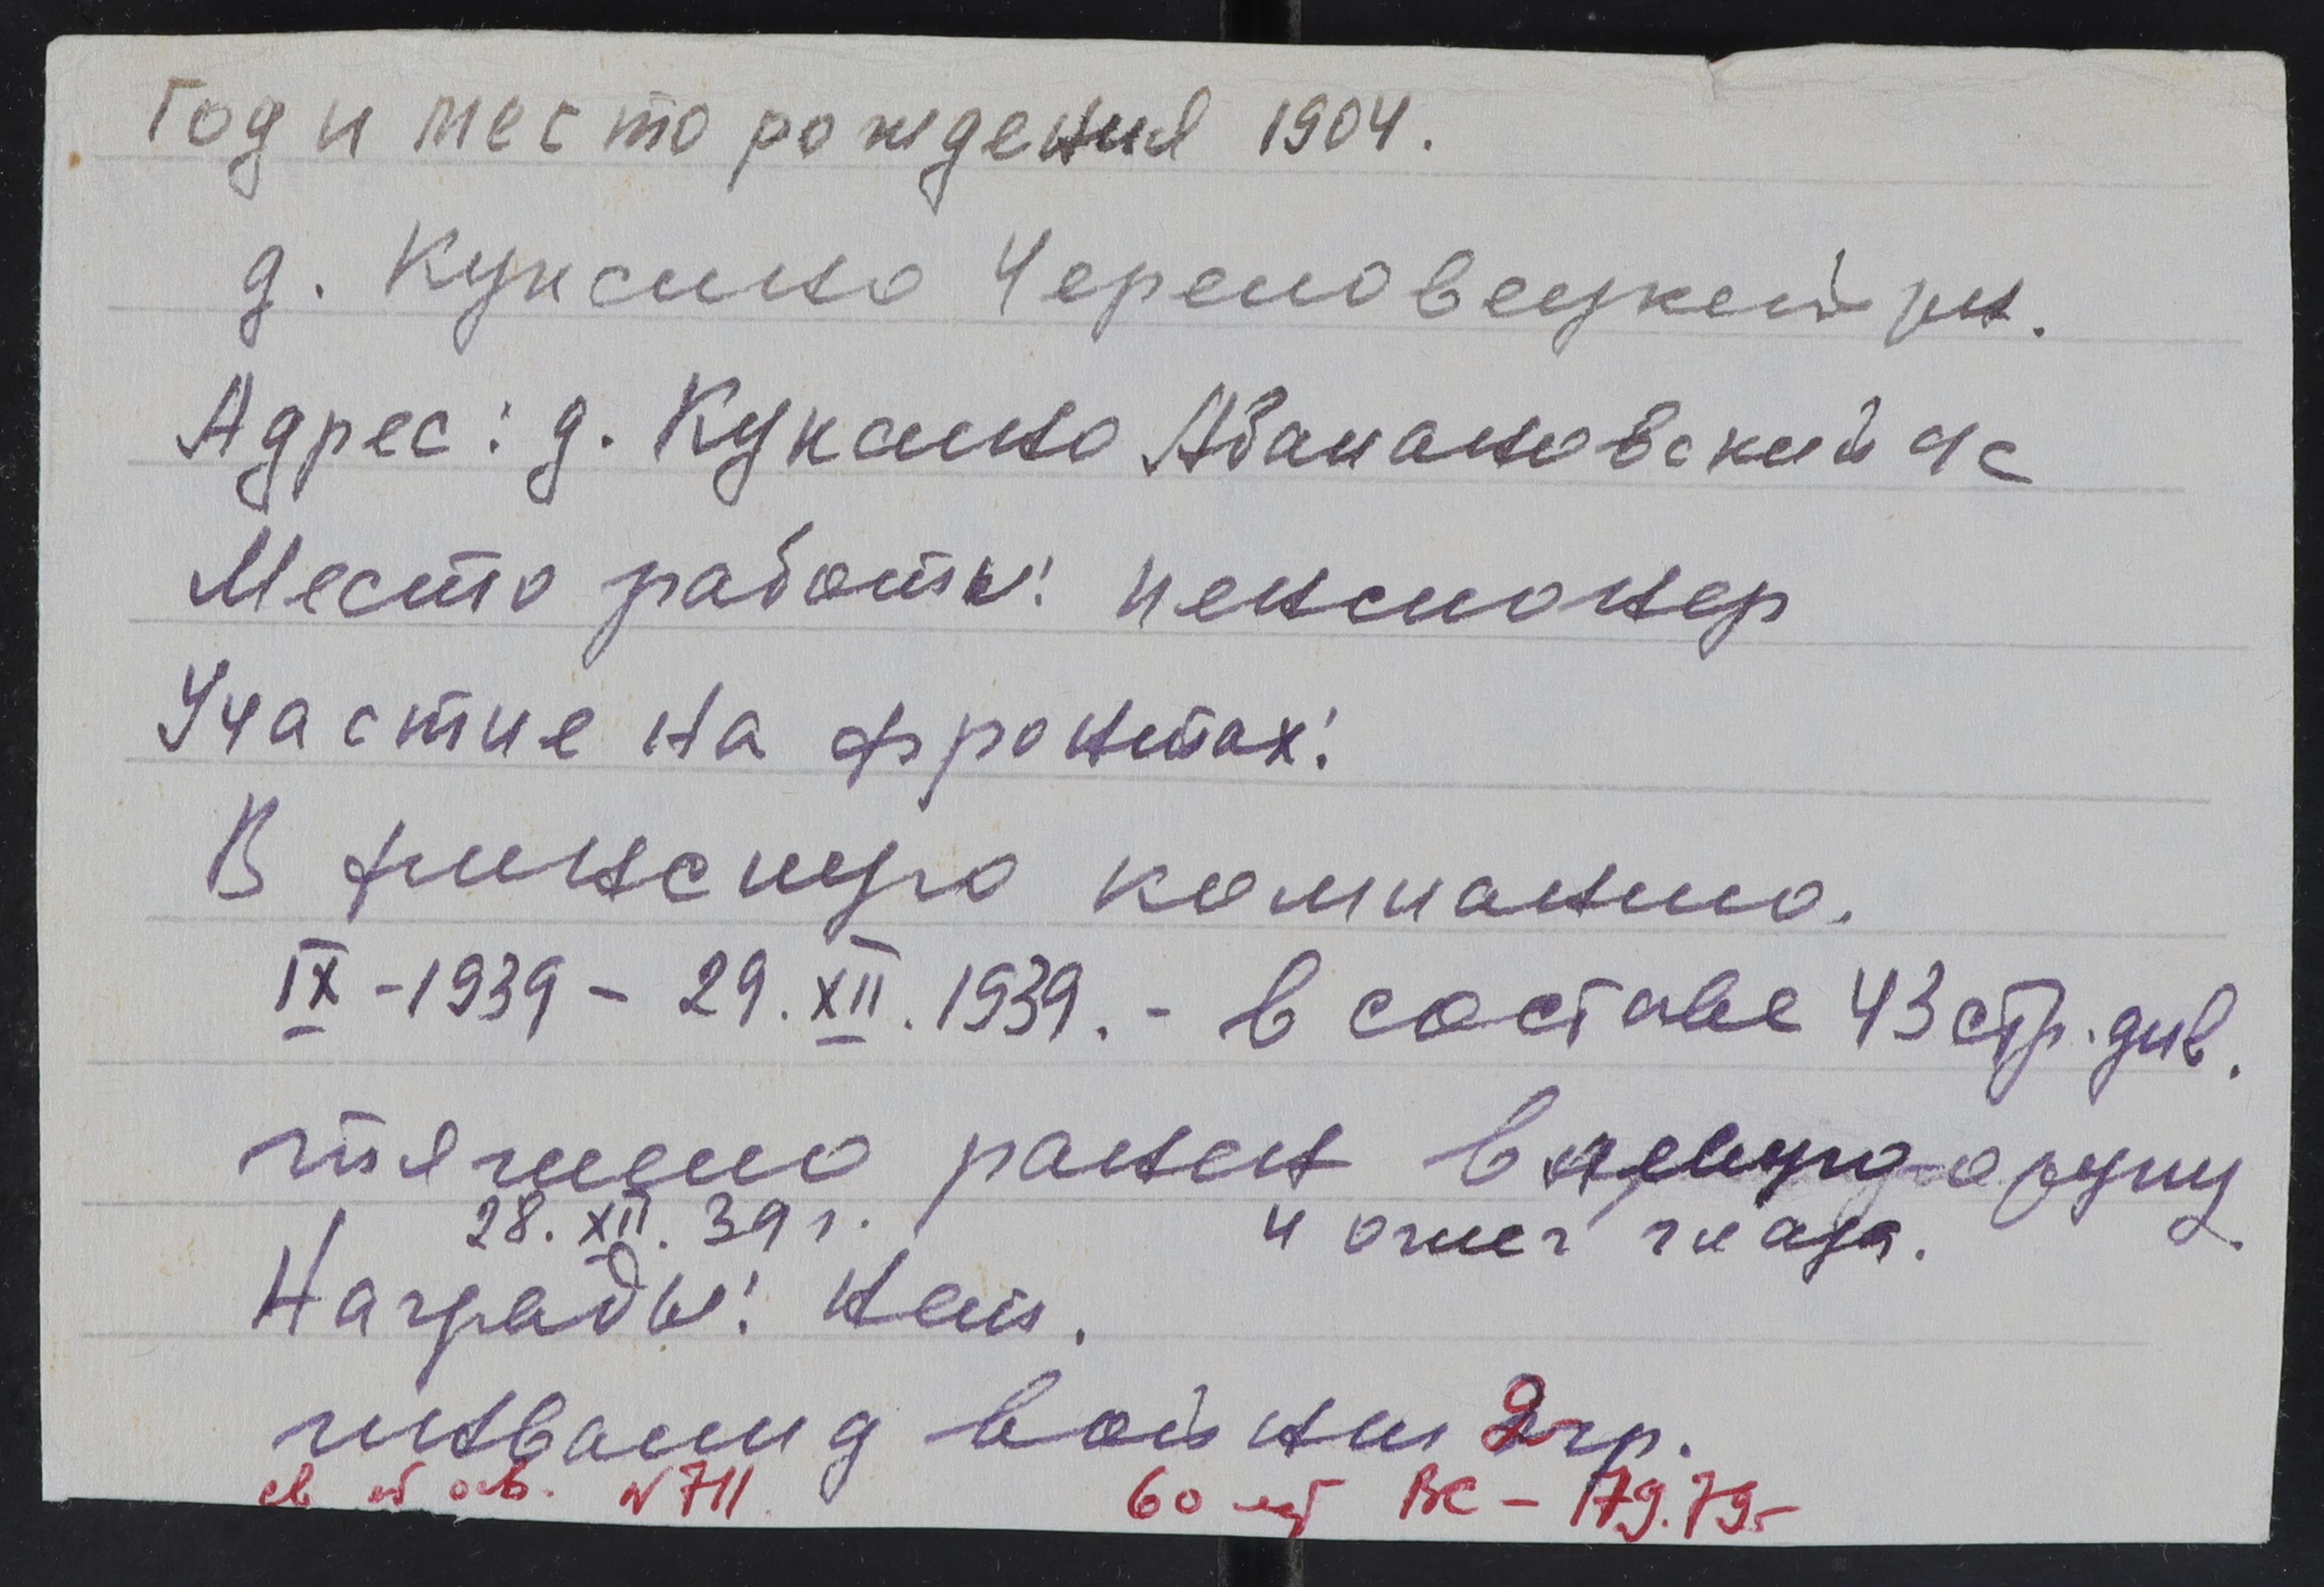 Год и место рождения 1904.
д. Куксино Череповецкий рн.
Адрес: д. Куксино Абакановский чс
Место работы: пенсионер
Участие на фронтах:
В финскую компанию.
IX - 1939 - 29. XII. 1939. - в составе 43 стр. див.
тяжело ранен в руку
28. XII. 39 г. и ожег глаза.
Награды: нет.
инвалид войны 2 гр.
N 711. 60 лет ВС - 179.79г